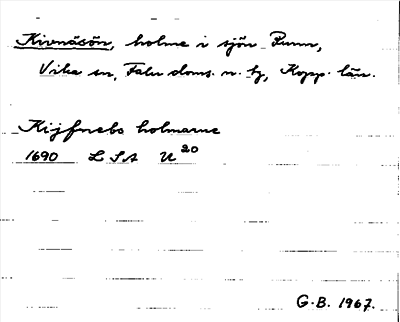 Kivnäsön, holme i sjön Runn,
Vika sn, Falu doms. n. tg, Kopp. län.
Kijfnebs holmarne
1690 LSA U 20
G.B. 1967.